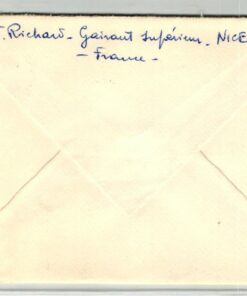 . Richard - Gairaut Supérieur. NICE
- France -